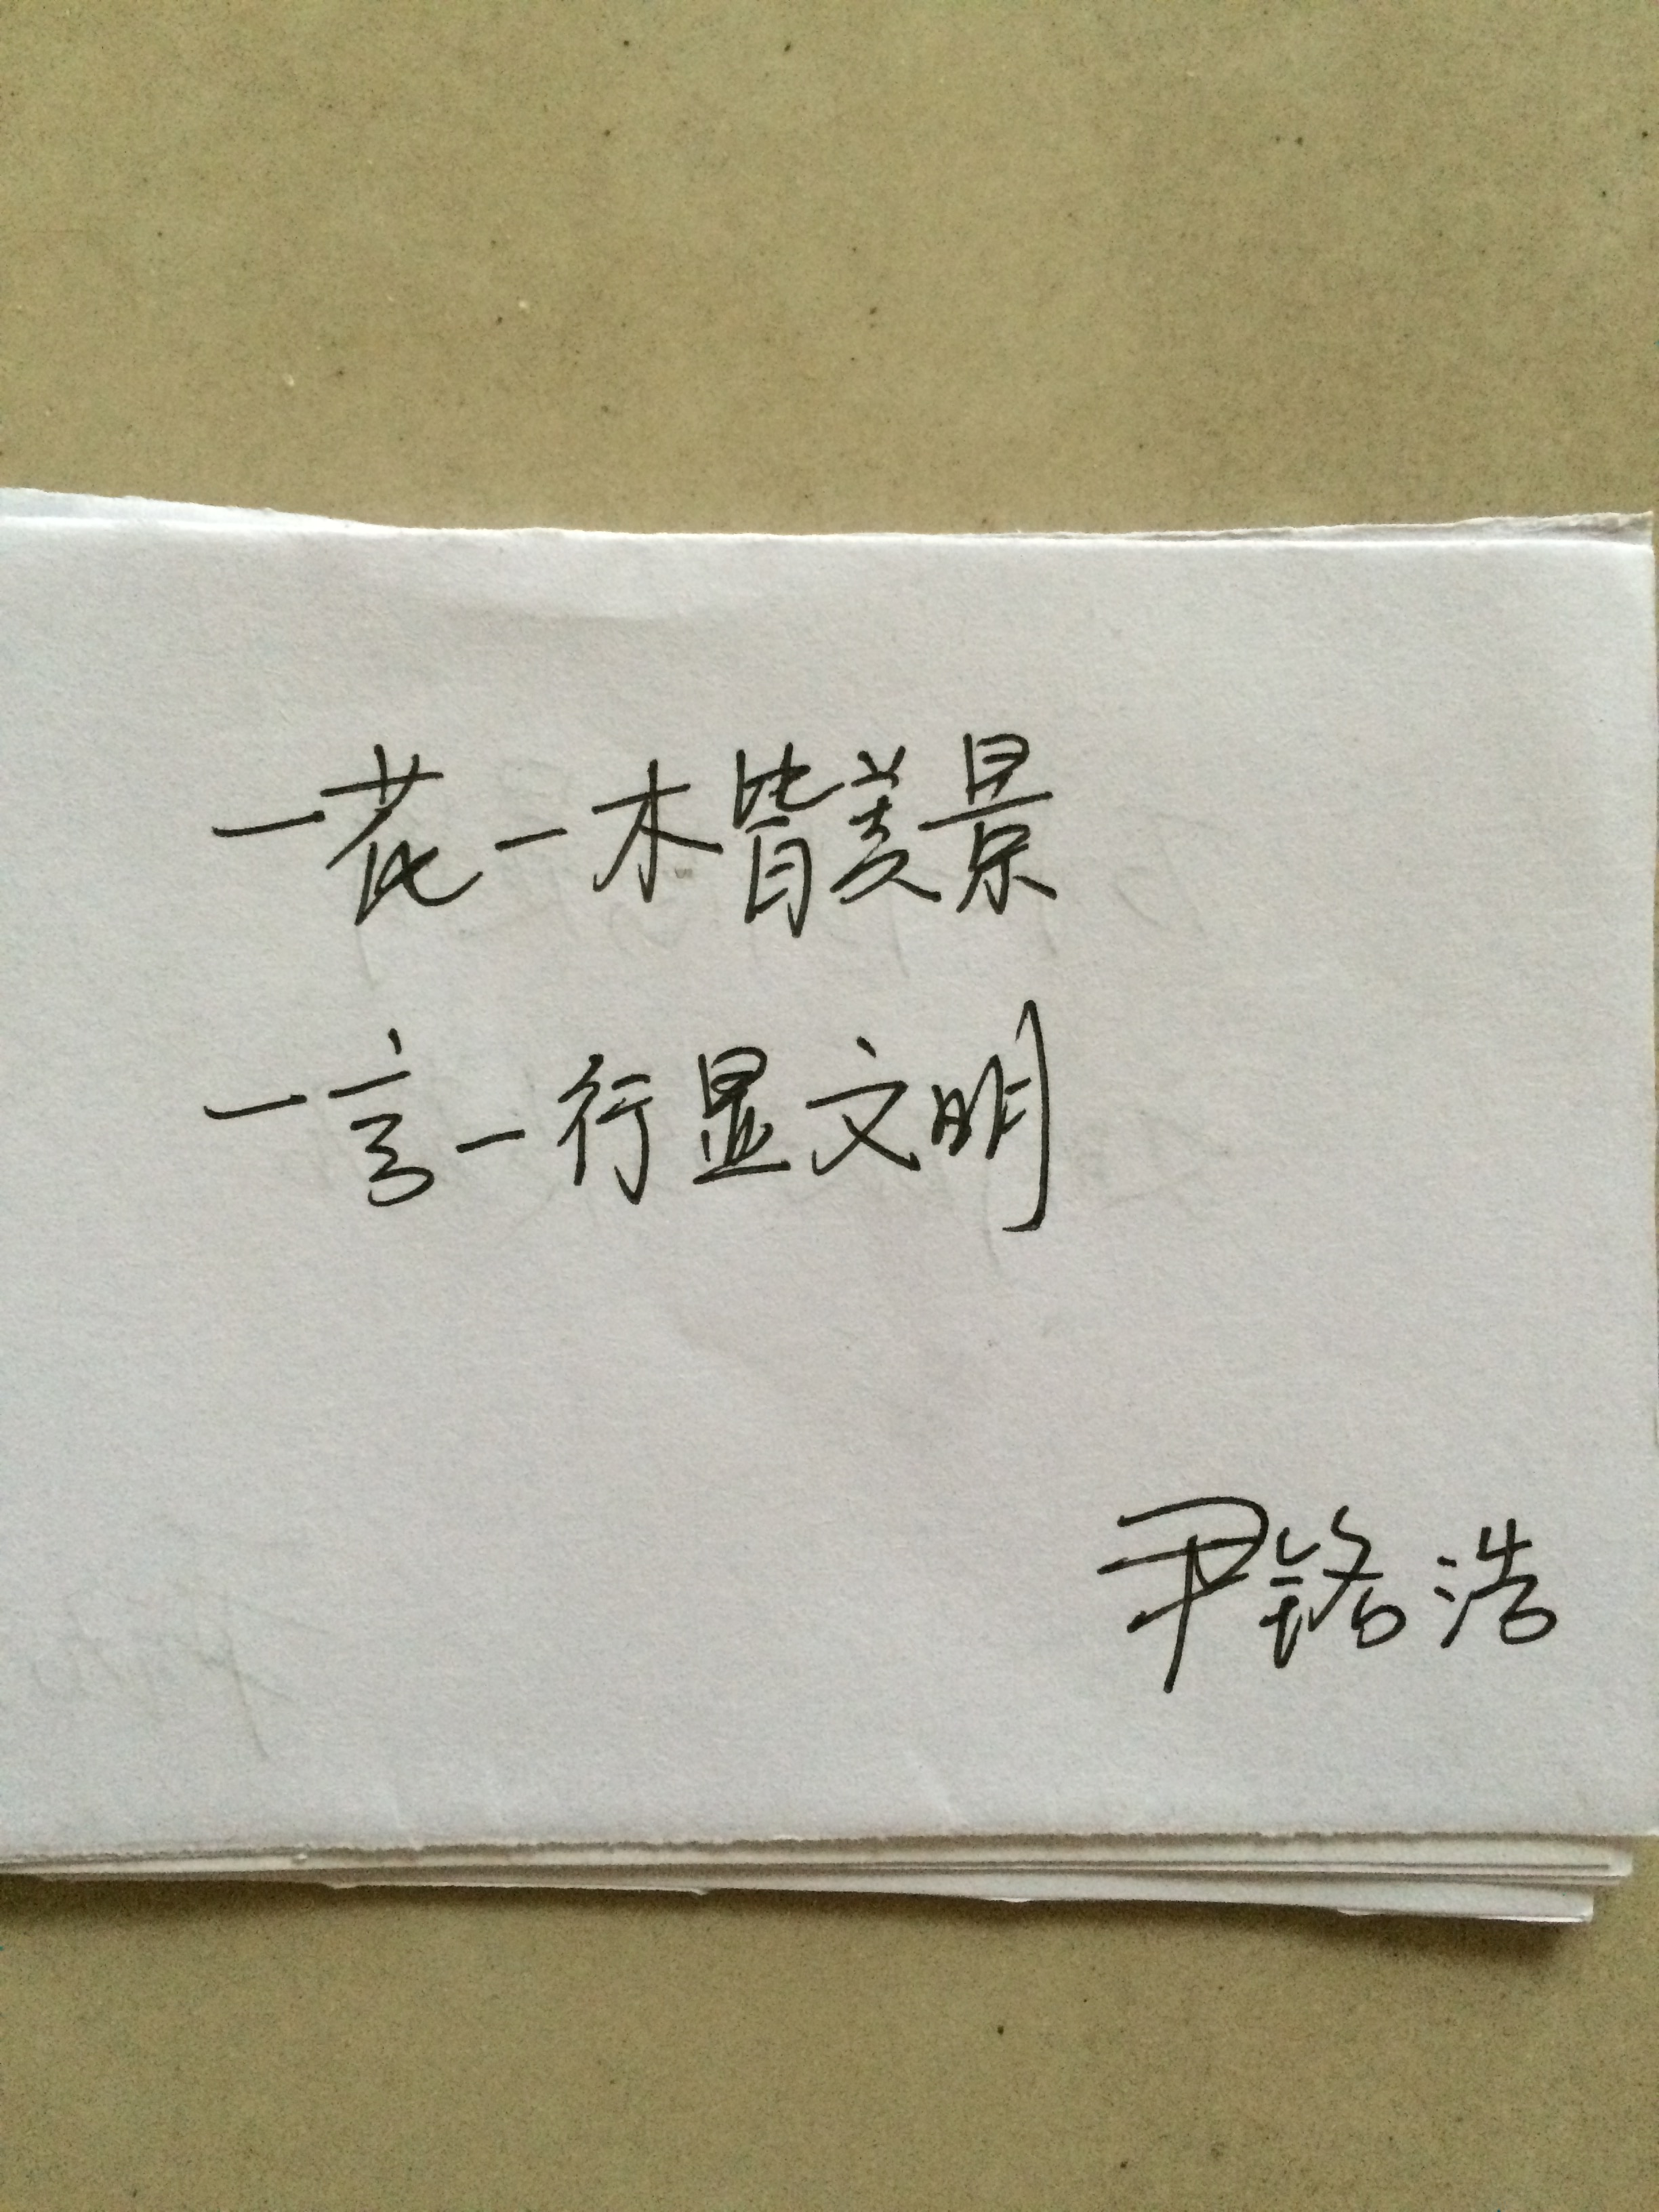 一花一木皆美景
一言一行显文明
尹铭浩